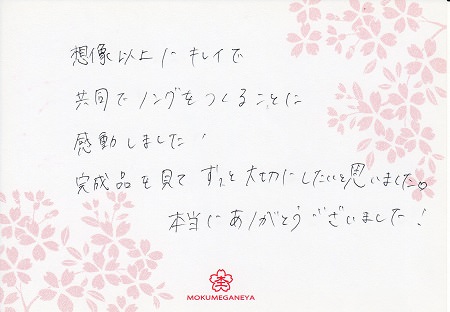 想像以上にキレイで
共同でリングをつくることに
感動しました!
完成品を見てずっと大切にしたいと思いました。
本当にありがとうございました!
MOKUMEGANEYA